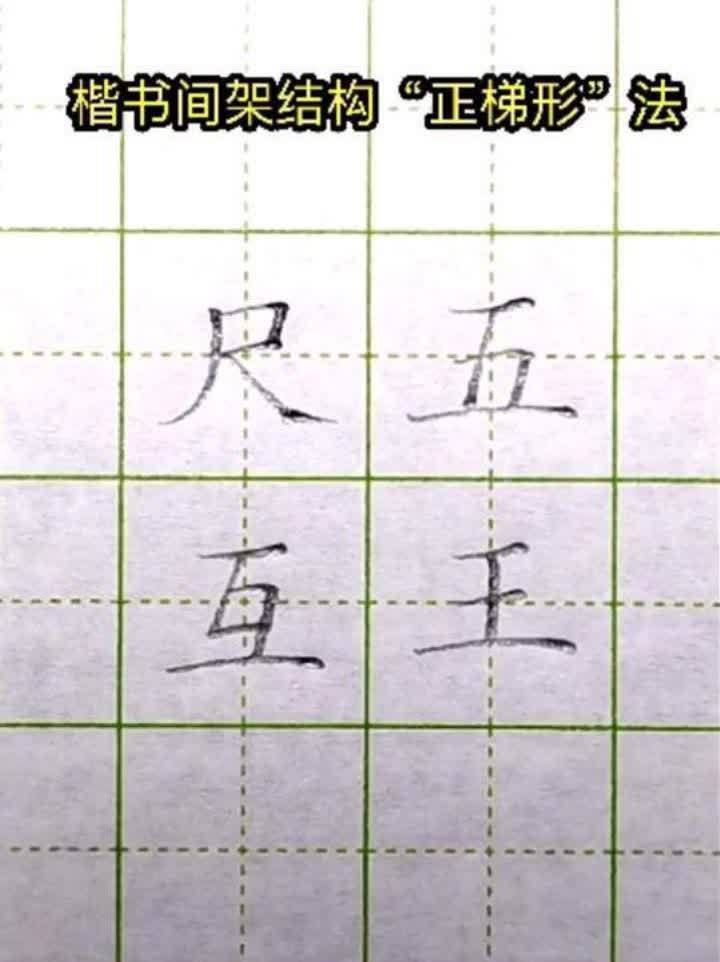 楷书间架结构“正梯形”法
尺五
互王